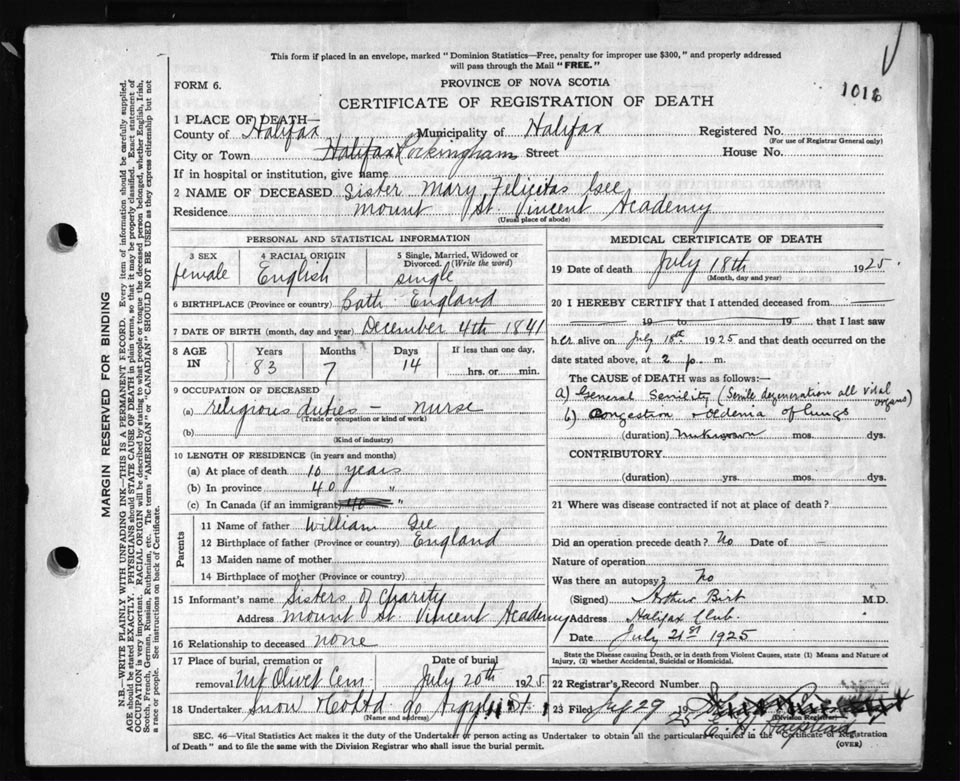 This form if placed in an envelope, marked "Dominion Statistics—Free, penalty for improper use $300," and properly addressed
will pass through the Mail "FREE."
FORM 6.
PROVINCE OF NOVA SCOTIA
1016
CERTIFICATE OF REGISTRATION OF DEATH
1 PLACE OF DEATH—
County of Halifax Municipality of Halifax Registered No.
(For use of Registrar General only)
City or Town Halifax Rockingham Street House No.
If in hospital or institution, give name
2 NAME OF DECEASED Sister Mary Felicitas Gee
Residence Mount St. Vincent Academy
(Usual place of abode)
PERSONAL AND STATISTICAL INFORMATION
3 SEX 4 RACIAL ORIGIN 5 Single, Married, Widowed or
Divorced. (Write the word)
female English single
6 BIRTHPLACE (Province or country) Bath England
7 DATE OF BIRTH (month, day and year) December 4th 1841
8 AGE IN Years Months Days If less than one day,
83 7 14 hrs. or min.
9 OCCUPATION OF DECEASED
(a) religious duties — nurse
(Trade or occupation or kind of work)
(b)
(Kind of industry)
10 LENGTH OF RESIDENCE (in years and months)
(a) At place of death 10 years
(b) In province 40 "
(c) In Canada (if an immigrant) 40 "
Parents
11 Name of father William Gee
12 Birthplace of father (Province or country) England
13 Maiden name of mother
14 Birthplace of mother (Province or country)
15 Informant's name Sisters of Charity
Address Mount St. Vincent Academy
16 Relationship to deceased none
17 Place of burial, cremation or Date of burial
removal Mt Olivet Cem. July 20th 1925
18 Undertaker Snow & Co Ltd 90 Argyle St.
(Name and address)
MEDICAL CERTIFICATE OF DEATH
19 Date of death July 18th 1925.
(Month, day and year)
20 I HEREBY CERTIFY that I attended deceased from
19 to 19 that I last saw
her alive on July 18th 1925 and that death occurred on the
date stated above, at 2 p. m.
The CAUSE of DEATH was as follows:—
a) General Senility (Senile degeneration all vital organs)
b) Congestion & oedema of lungs
(duration) unknown mos. dys.
CONTRIBUTORY
(duration) yrs. mos. dys.
21 Where was disease contracted if not at place of death?
Did an operation precede death? No Date of —
Nature of operation
Was there an autopsy? No
(Signed) Arthur Birt M.D.
Address Halifax Club.
Date July 21st 1925
State the Disease causing Death, or in death from Violent Causes, state (1) Means and Nature of
Injury, (2) whether Accidental, Suicidal or Homicidal.
22 Registrar's Record Number
23 Filed July 29 1925
(Division Registrar)
SEC. 46—Vital Statistics Act makes it the duty of the Undertaker or person acting as Undertaker to obtain all the particulars required in the Certificate of Registration
of Death" and to file the same with the Division Registrar who shall issue the burial permit.
(OVER)
MARGIN RESERVED FOR BINDING
N.B.—WRITE PLAINLY WITH UNFADING INK—THIS IS A PERMANENT RECORD. Every item of information should be carefully supplied.
AGE should be stated EXACTLY. PHYSICIANS should STATE CAUSE OF DEATH in plain terms, so that it may be properly classified. Exact statement of
OCCUPATION is very important. RACIAL ORIGIN will be described by stating to what people or tongue the deceased person belonged, whether English, Irish,
Scotch, French, German, Russian, Ruthenian, etc. The terms "AMERICAN" or "CANADIAN" SHOULD NOT BE USED as they express citizenship but not
a race or people. See instructions on back of Certificate.